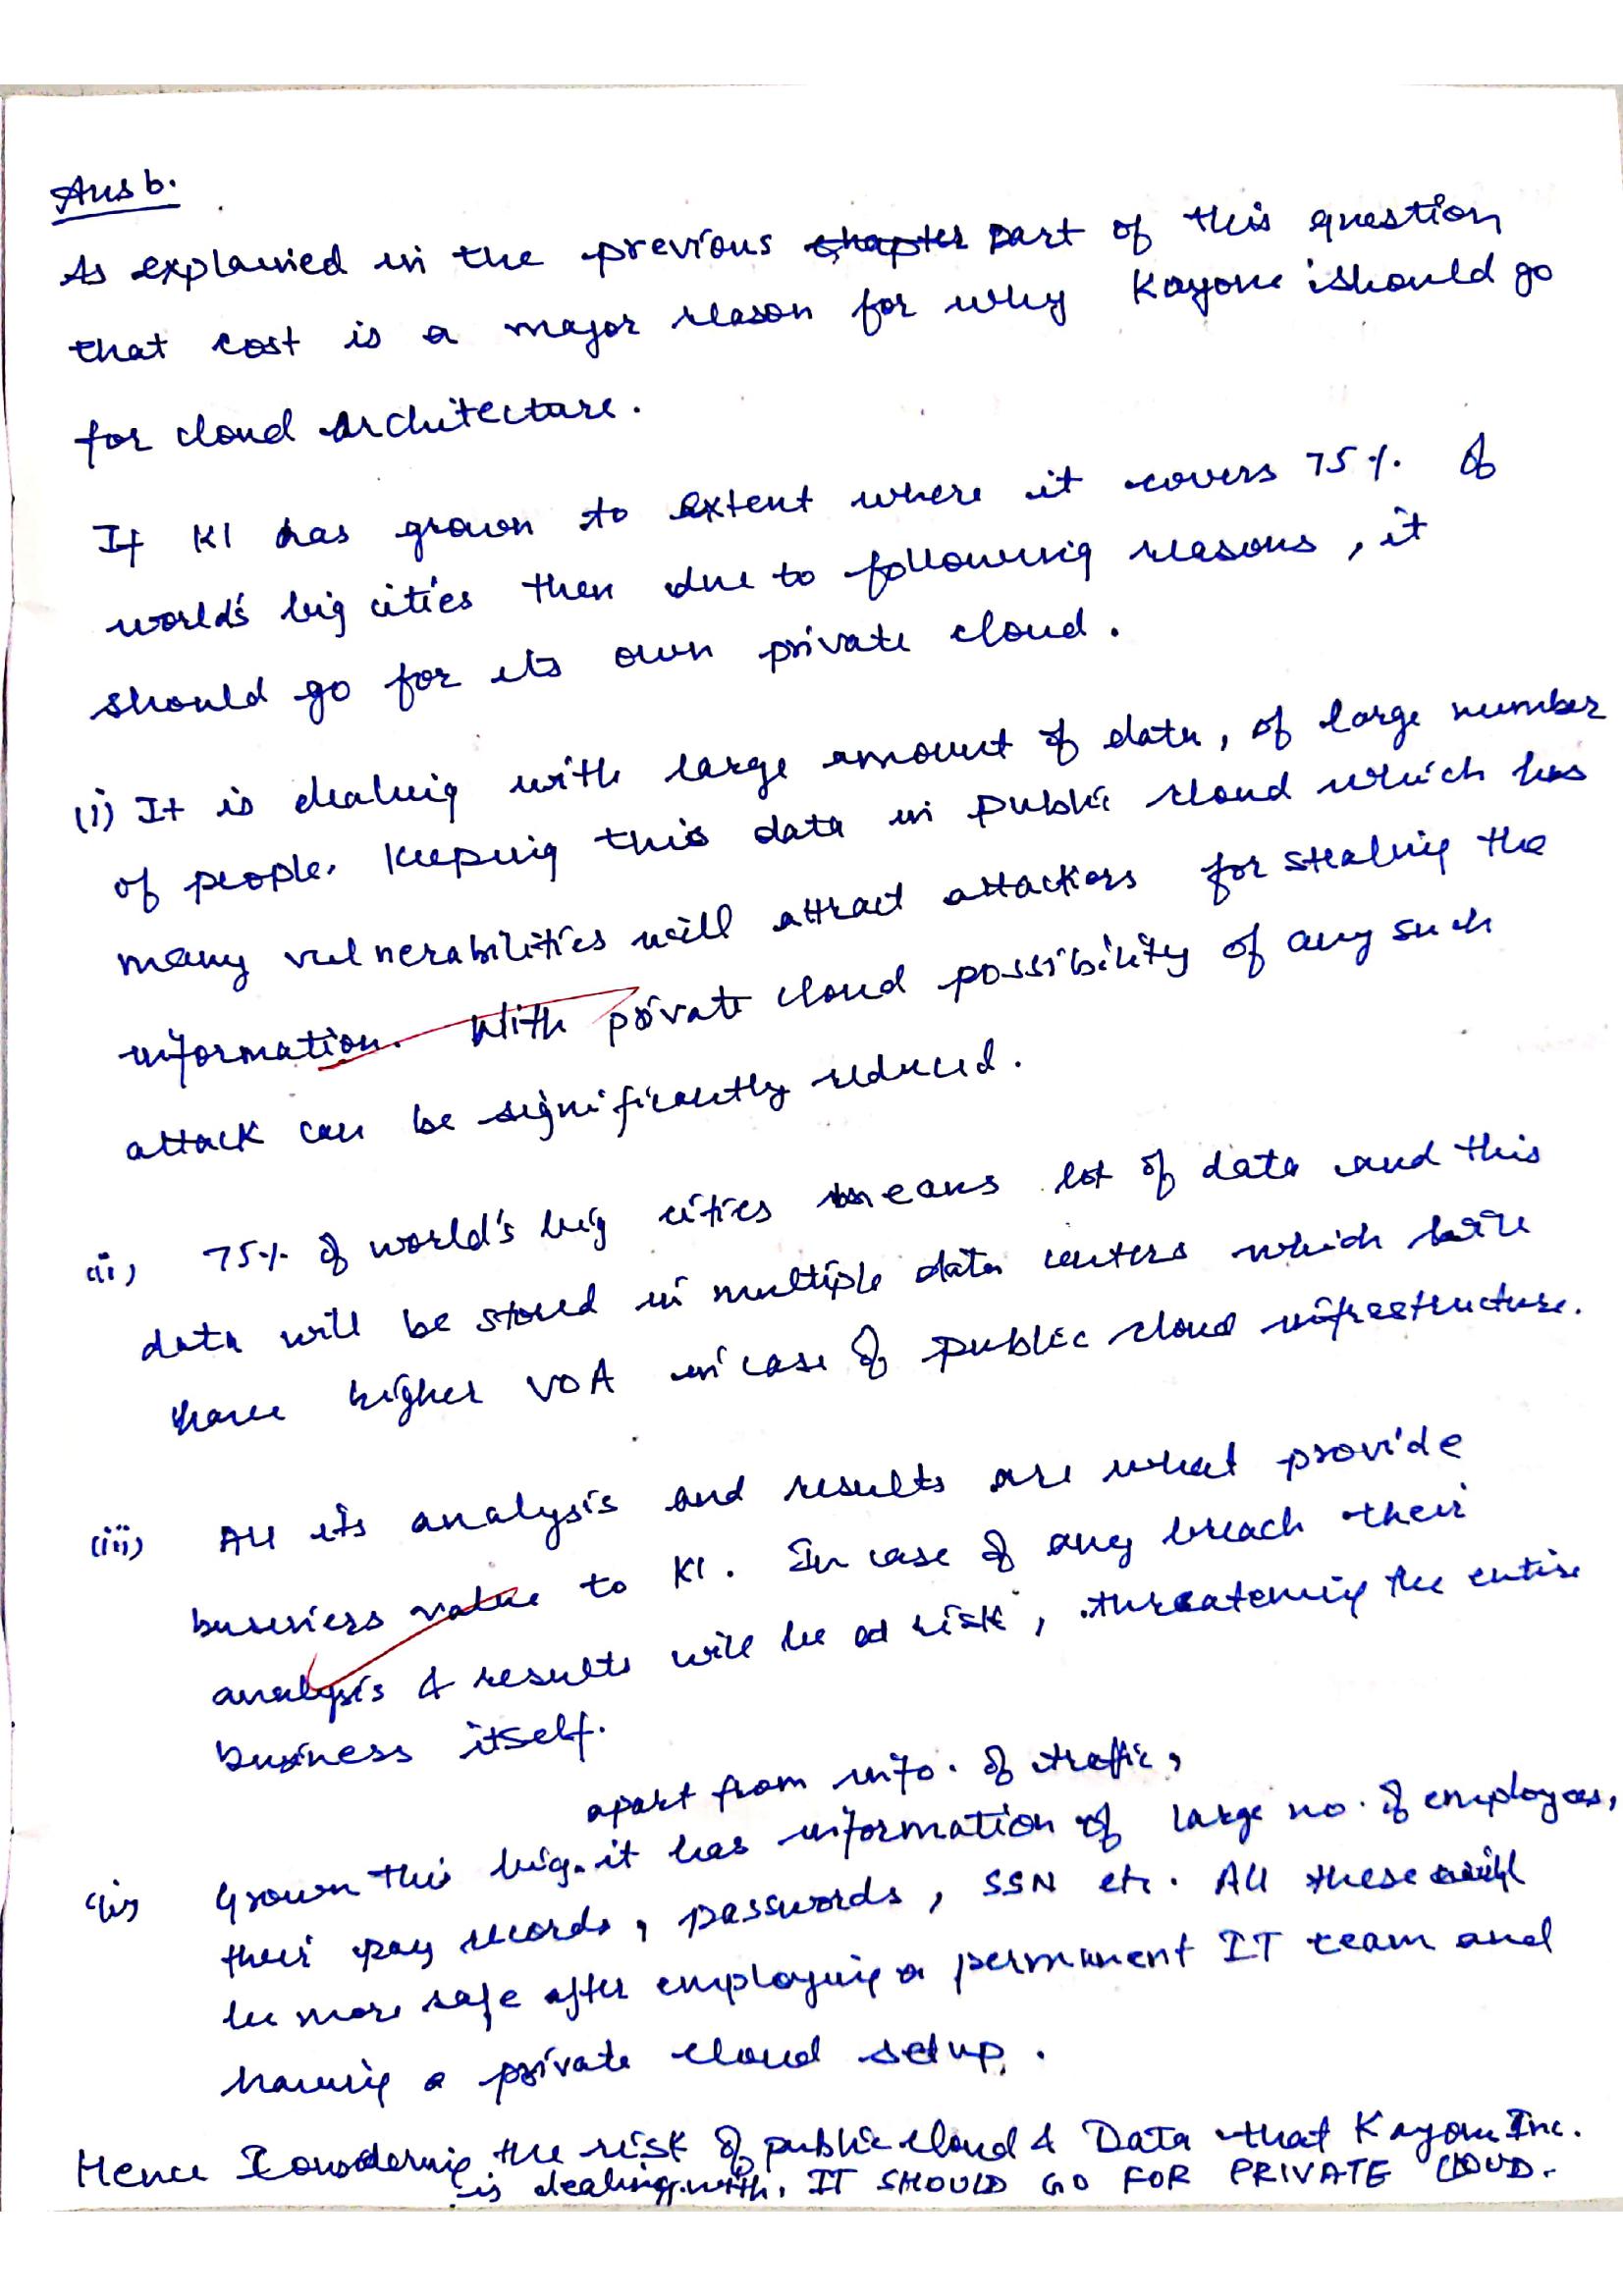 Ans b.
As explained in the previous chapter part of this question
that cost is a major reason for why Kayone should go
for cloud architecture.
If KI has grown to extent where it covers 75% of
world's big cities then due to following reasons, it
should go for its own private cloud.
(i) It is dealing with large amount of data, of large number
of people. Keeping this data in public cloud which has
many vulnerabilities will attract attackers for stealing the
information. With private cloud possibility of any such
attack can be significantly reduced.
(ii) 75% of world's big cities means lot of data and this
data will be stored in multiple data centers which
have higher VOA in case of public cloud infrastructure.
(iii) All its analysis and results are what provide
business value to KI. In case of any breach their
analysis & results will be at risk, threatening the entire
business itself.
apart from info. of traffic,
(iv) Grown this big, it has information of large no. of employees,
their pay records, passwords, SSN etc. All these will
be more safe after employing a permanent IT team and
having a private cloud setup.
Hence Considering the risk of public cloud & Data that Kayone Inc.
is dealing with, IT SHOULD GO FOR PRIVATE CLOUD.